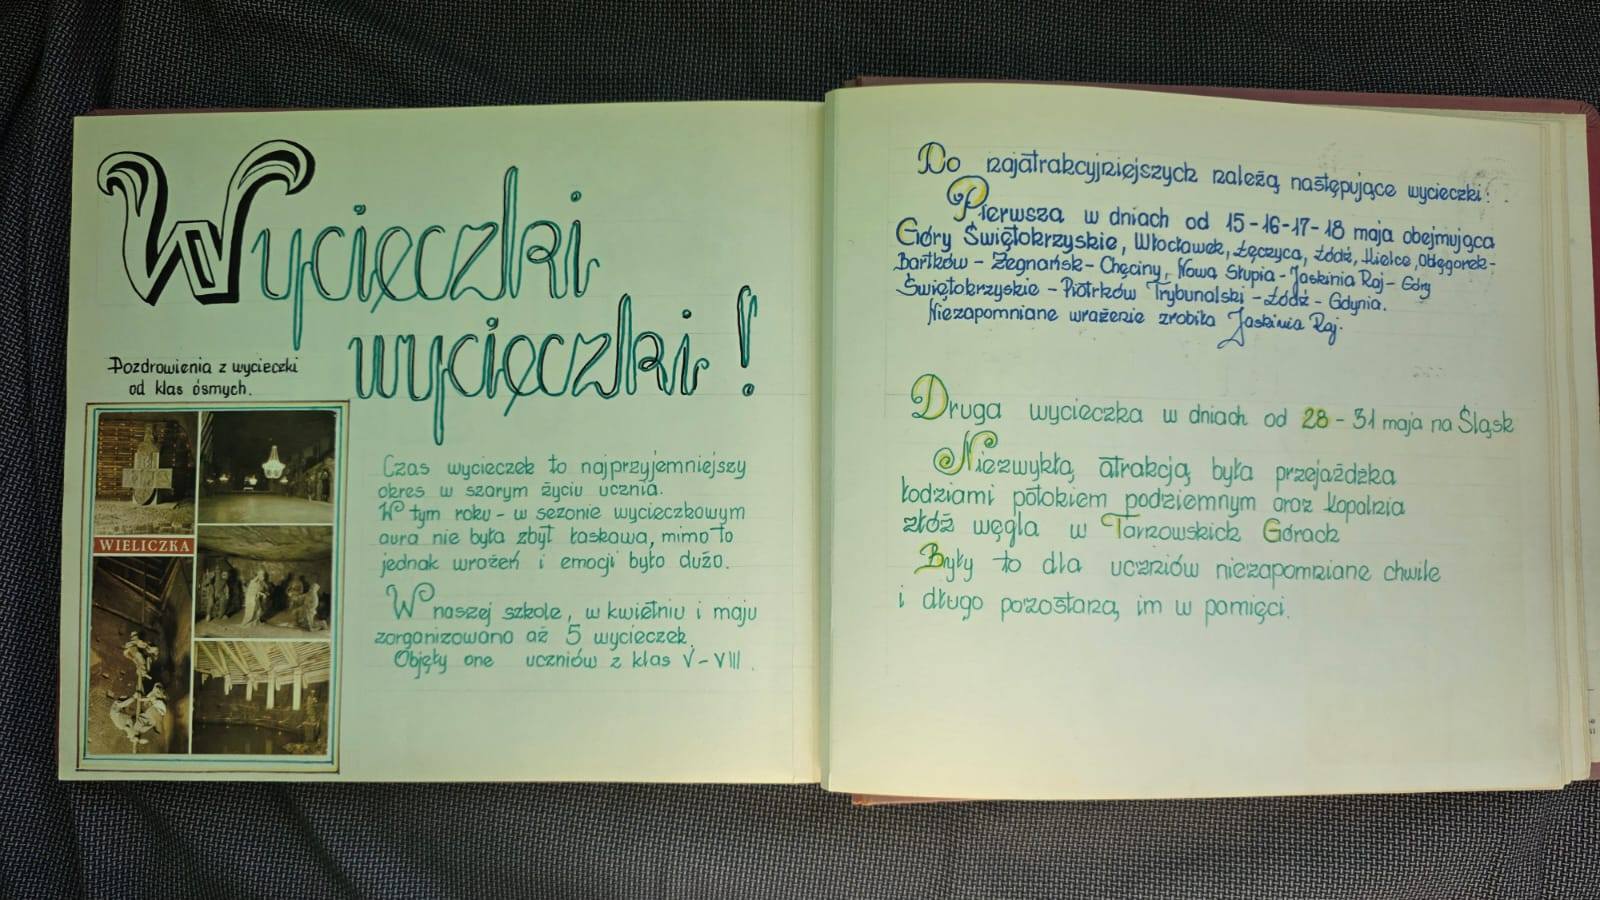 Wycieczki
wycieczki!
Pozdrowienia z wycieczki
od klas ósmych.
WIELICZKA
Czas wycieczek to najprzyjemniejszy
okres w szarym życiu ucznia.
W tym roku - w sezonie wycieczkowym
aura nie była zbyt łaskawa, mimo to
jednak wrażeń i emocji było dużo.
W naszej szkole, w kwietniu i maju
zorganizowano aż 5 wycieczek.
Objęły one uczniów z klas V-VIII.
Do najatrakcyjniejszych należą następujące wycieczki:
Pierwsza w dniach od 15-16-17-18 maja obejmująca
Góry Świętokrzyskie, Włocławek, Łęczyca, Łódź, Kielce, Oblęgorek-
Bartków - Zegnańsk - Chęciny, Nowa Słupia - Jaskinia Raj - Góry
Świętokrzyskie - Piotrków Trybunalski - Łódź - Gdynia.
Niezapomniane wrażenie zrobiła Jaskinia Raj.
Druga wycieczka w dniach od 28 - 31 maja na Śląsk
Niezwykłą atrakcją była przejażdżka
łodziami potokiem podziemnym oraz kopalnia
złóż węgla w Tarnowskich Górach
Były to dla uczniów niezapomniane chwile
i długo pozostaną im w pamięci.